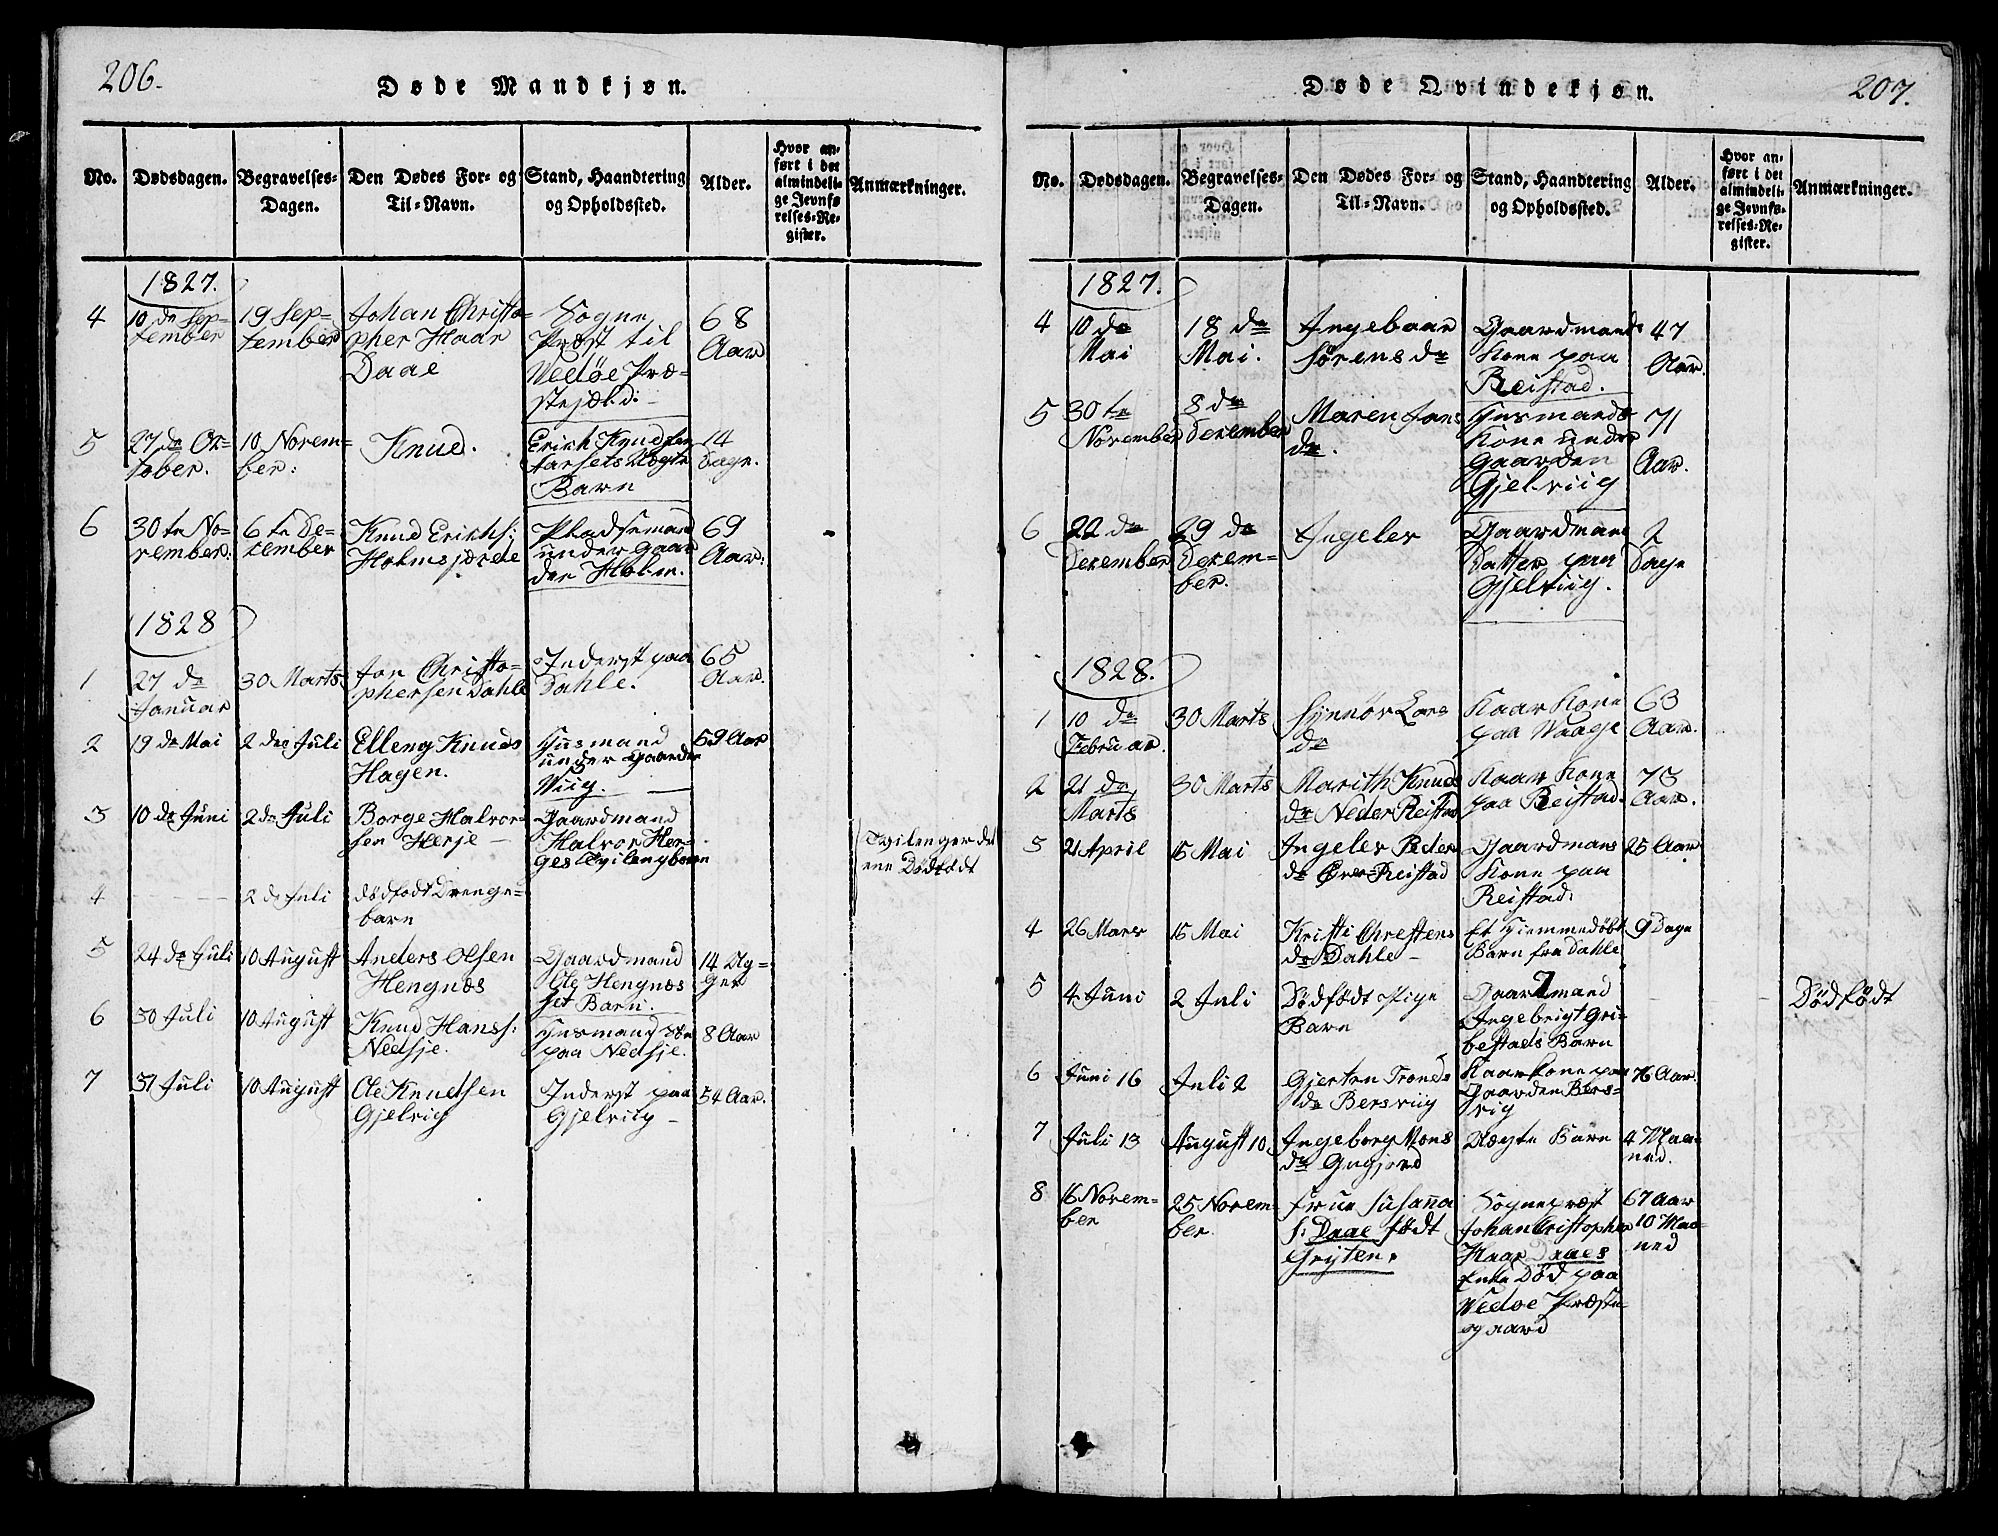 206.
Døde Mandkjøn.
No. Dødsdagen. Begravelses-Dagen. Den Dødes For- og Til-Navn. Stand, Haandtering og Opholdssted. Alder. Hvor anført i det almindelige Jevnførelses-Register. Anmærkninger.
1827.
4 10 de September 19 September Johan Christopher Haar Daae Sogne Præst til Vedøe Præstejæld: 68 Aar
5 27 de October. 10 November: Knud. Erich Knudsen Aarsets Uægte Barn 14 Dage.
6 30 te November: 6 te December Knud Erichs: Holmsjerde Pladsemand under Gaarden Holm. 69 Aar:
1828
1 27 de Januar 30 Marts Jon Christophersen Dahle Inderst paa Dahle. 65 Aar.
2 19 de Mai 2 den Juli Elleng Knuds Hagen. Husmand under Gaarden Wiig. 59 Aar
3 10 de Juni 2 de Juli Borge Halvorsen Herje Gaardmand Halvor Herges Tvilengbarn Tvilenger det ene Dødfødt
4 2 de Juli dödfødt Drengebarn
5 24 de Juli 10 August Anders Olsen Hengnæs Gaardmand Ole Hengnæsset Barn. 14 Uger
6 30 Juli 10 August Knud Hanss: Nedsje. Husmand paa Nedsje. 8 Aar
7 31 Juli 10 August Ole Knudsen Gjelvig Inderst paa Gjelviig 54 Aar.
207.
Døde Qvindekjøn.
No. Dødsdagen. Begravelses-Dagen. Den Dødes For- og Til-Navn. Stand, Haandtering og Opholdssted. Alder. Hvor anført i det almindelige Jevnførelses-Register. Anmærkninger.
1827.
4 10 de Mai 18 de Mai. Ingebaar Sørens dr Gaardmands Kone paa Reistad. 47 Aar.
5 30 te November 8 de December Maren Jons dr. Husmands Kone under Gaarden Gjelviig 71 Aar.
6 22 de December 29 de December. Ingeler Gaardmans Datter paa Gjelviig. 2 Dage
1828.
1 10 de Februar. 30 Marts Synnøv Lars dr Kaar Kone paa Waage 63 Aar.
2 21 de Marts 30 Marts Marith Knuds dr Neder Reistad Kaar Kone paa Reistad. 73 Aar.
3 21 April 15 Mai Ingeler Peder dr Øvre Reistad Gaardmans Kone paa Reistad. 25 Aar
4 26 Mars 15 Mai Kristi Chrestens dr Dahle Et Hjemmedøbt Barn fra Dahle 9 Dage
5 4 Juni 2 Juli Dödfödt Pige Barn Gaardmand Ingebrigt Gribestads Barn Dödfödt
6 Juni 16 Juli 2 Gjertru Tronds dr Bersviig Kaarkone paa Gaarden Bersvig 76 Aar.
7 Juli 13 August 10 Ingeborg Mons dr Gugjerd Uægte Barn 4 Maaned.
8 16 November 25 November Frue Susanna S: Daae født Gryten. Sognepræst Johan Cristopher Haar Daaes Enke Död paa Vedøe Præstegaard 67 Aar 10 Maaned